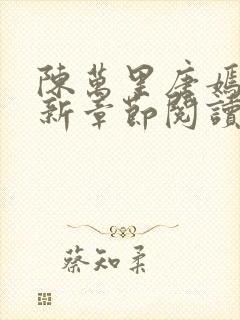 陳萬里唐嫣
新章節閱讀
蔡知柔